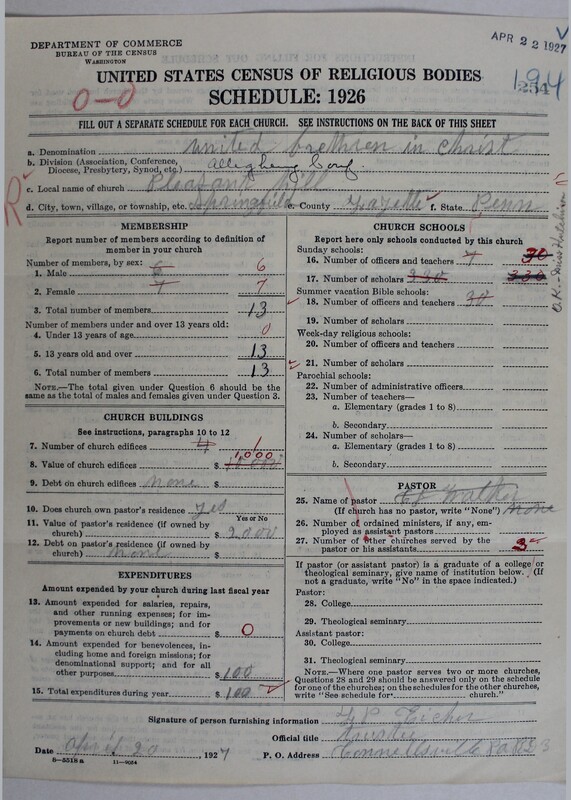 DEPARTMENT OF COMMERCE
BUREAU OF THE CENSUS
WASHINGTON
APR 22 1927
UNITED STATES CENSUS OF RELIGIOUS BODIES
SCHEDULE: 1926
0-0
194
254
FILL OUT A SEPARATE SCHEDULE FOR EACH CHURCH. SEE INSTRUCTIONS ON THE BACK OF THIS SHEET
a. Denomination United brethren in Christ
b. Division (Association, Conference, Diocese, Presbytery, Synod, etc.) Allegheny Conf.
c. Local name of church Pleasant Hill
d. City, town, village, or township, etc. Springfield e. County Fayette f. State Penn
R
MEMBERSHIP
Report number of members according to definition of member in your church
Number of members, by sex:
1. Male 6 6
2. Female 7 7
3. Total number of members 13
Number of members under and over 13 years old:
4. Under 13 years of age 0
5. 13 years old and over 13
6. Total number of members 13
NOTE.—The total given under Question 6 should be the same as the total of males and females given under Question 3.
CHURCH BUILDINGS
See instructions, paragraphs 10 to 12
7. Number of church edifices 4 1
8. Value of church edifices $ 1,000
9. Debt on church edifices none $
10. Does church own pastor's residence yes
Yes or No
11. Value of pastor's residence (if owned by church) $ 2000
12. Debt on pastor's residence (if owned by church) none $
EXPENDITURES
Amount expended by your church during last fiscal year
13. Amount expended for salaries, repairs, and other running expenses; for improvements or new buildings; and for payments on church debt $ 0
14. Amount expended for benevolences, including home and foreign missions; for denominational support; and for all other purposes $ 100
15. Total expenditures during year $ 100
CHURCH SCHOOLS
Report here only schools conducted by this church
Sunday schools:
16. Number of officers and teachers 4 30
17. Number of scholars 330 330
Summer vacation Bible schools:
18. Number of officers and teachers 30
19. Number of scholars
Week-day religious schools:
20. Number of officers and teachers
21. Number of scholars
Parochial schools:
22. Number of administrative officers
23. Number of teachers—
a. Elementary (grades 1 to 8)
b. Secondary
24. Number of scholars—
a. Elementary (grades 1 to 8)
b. Secondary
O.K.-Miss Hutchison
PASTOR
25. Name of pastor Walter
(If church has no pastor, write "None") none
26. Number of ordained ministers, if any, employed as assistant pastors
27. Number of other churches served by the pastor or his assistants 3
If pastor (or assistant pastor) is a graduate of a college or theological seminary, give name of institution below. (If not a graduate, write "No" in the space indicated.)
Pastor:
28. College
29. Theological seminary
Assistant pastor:
30. College
31. Theological seminary
NOTE.—Where one pastor serves two or more churches, Questions 28 and 29 should be answered only on the schedule for one of the churches; on the schedules for the other churches, write "See schedule for church."
Signature of person furnishing information Eicher
Official title
Date April 20 1927 P. O. Address Connellsville Pa
8-5518a 11-9024